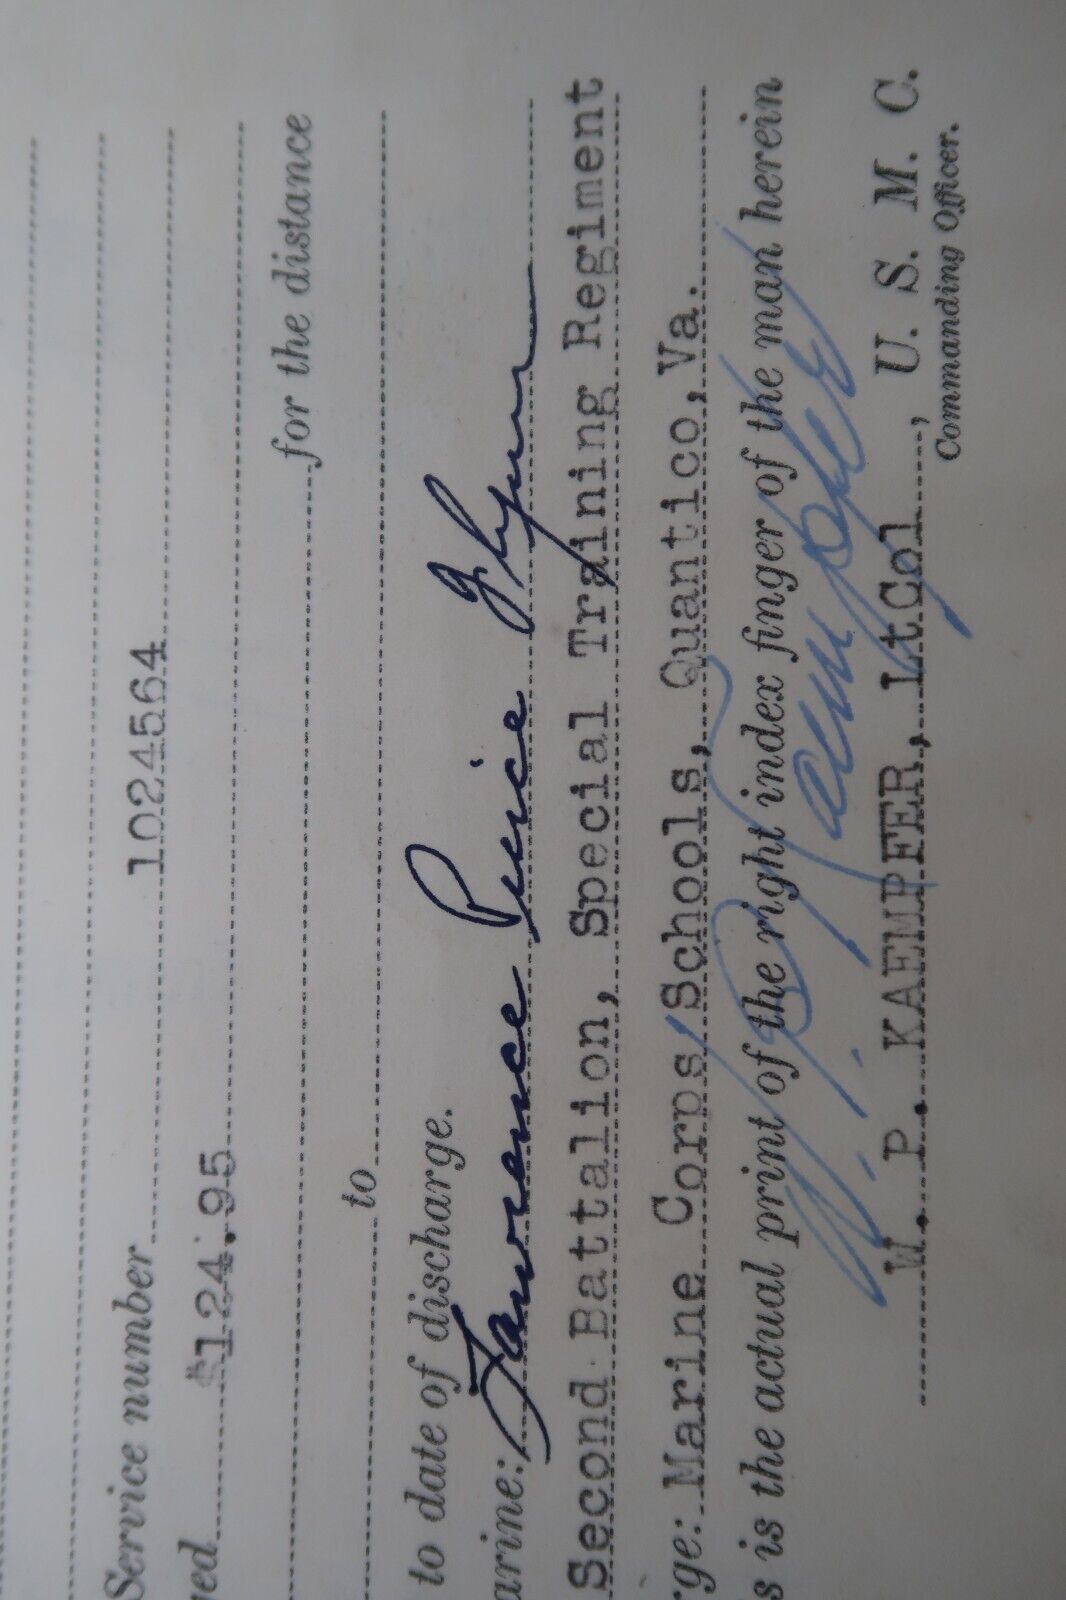 Service number 1024564
ged $124.95
for the distance
to
to date of discharge.
arine: Lawrence Glynn
Second Battalion, Special Training Regiment
rge: Marine Corps Schools, Quantico, Va.
s is the actual print of the right index finger of the man herein
W. P. Kaempfer
W. P. KAEMPFER, LtCol , U. S. M. C.
Commanding Officer.